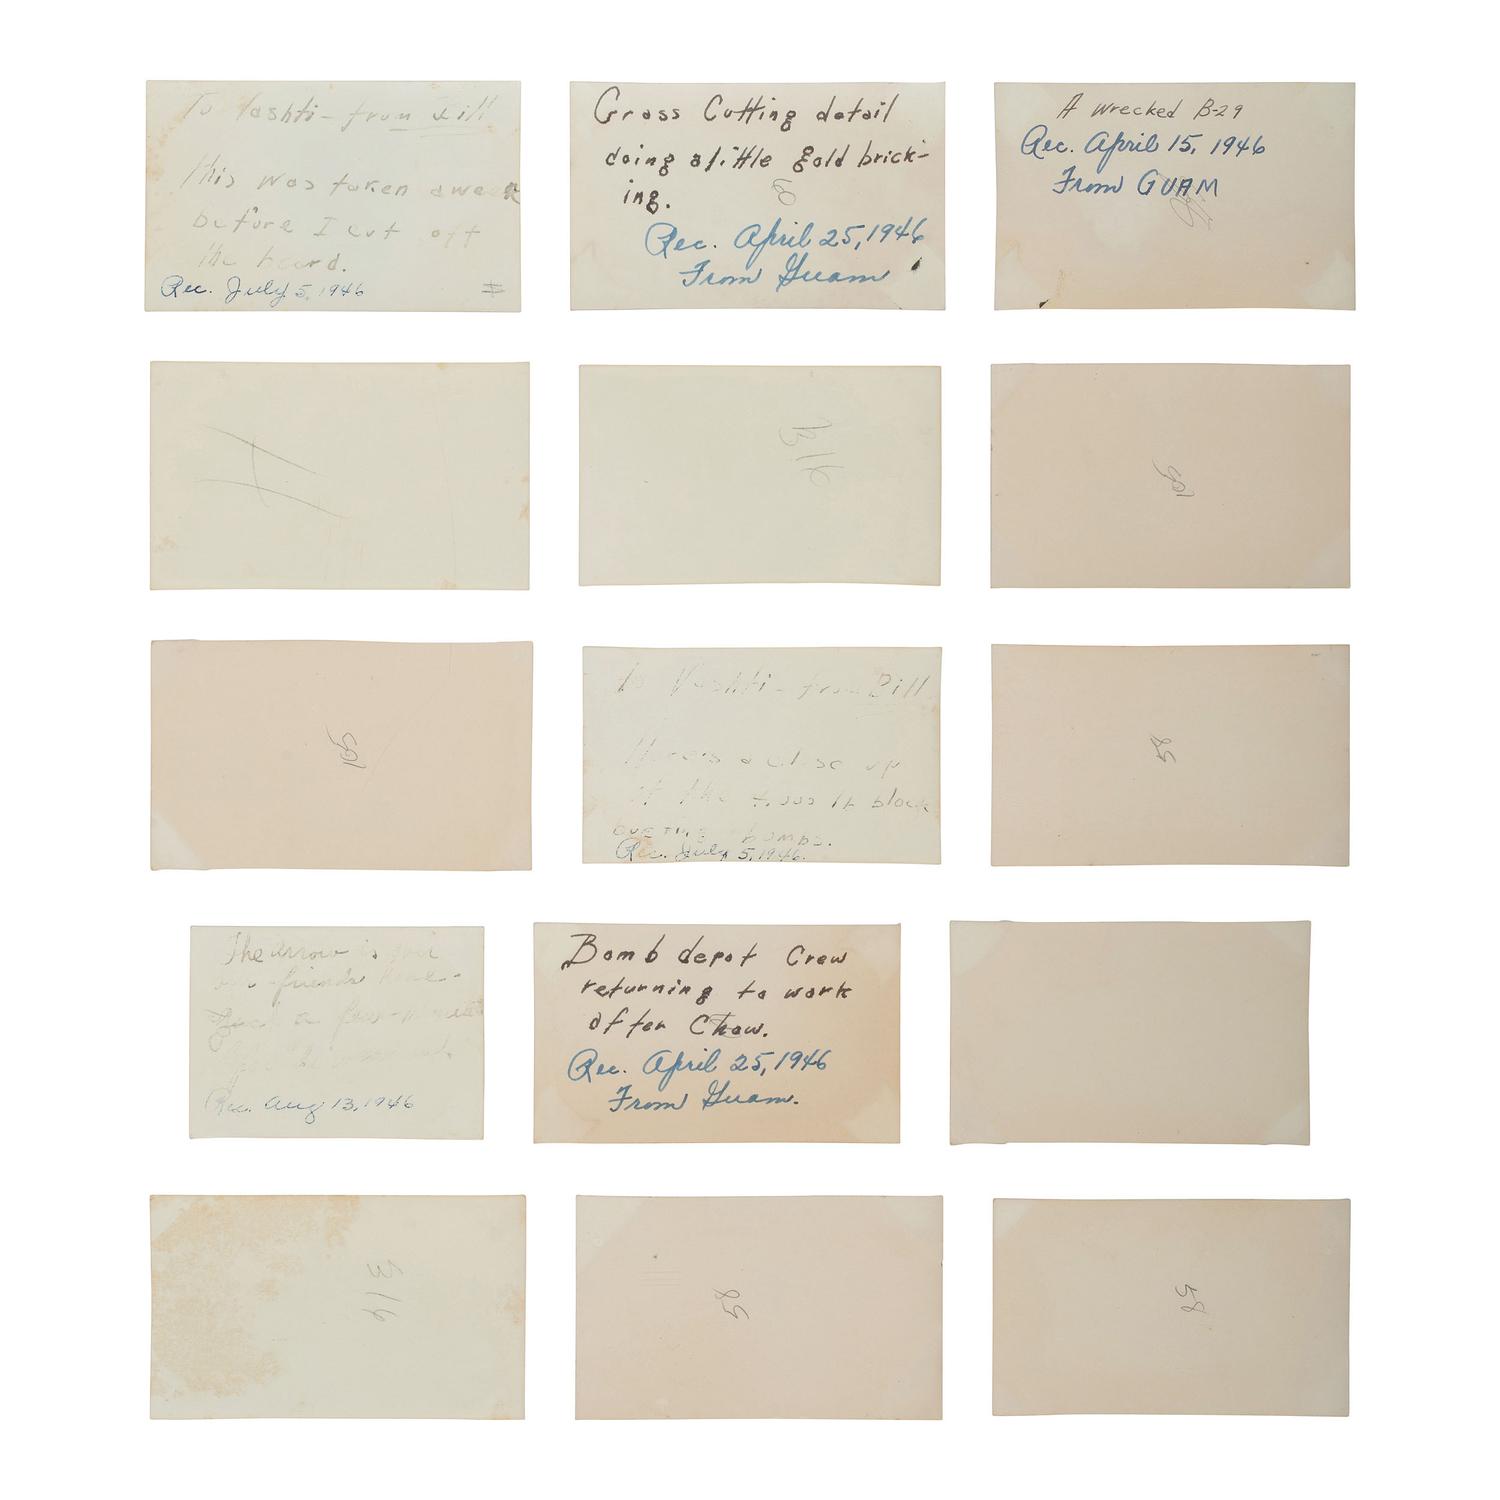 To Vashti - from Bill
This was taken a week
before I cut off
the beard.
Rec. July 5, 1946
Grass Cutting detail
doing a little gold brick-
ing.
60
Rec. April 25, 1946
From Guam
A wrecked B-29
Rec. April 15, 1946
From GUAM
316
To Vashti - from Bill
Here's a close up
of the block
bombs.
Rec. July 5, 1946.
58
The arrow is
friends
a few
Rec. Aug 13, 1946
Bomb depot Crew
returning to work
after Chow.
Rec. April 25, 1946
From Guam.
316
58
58